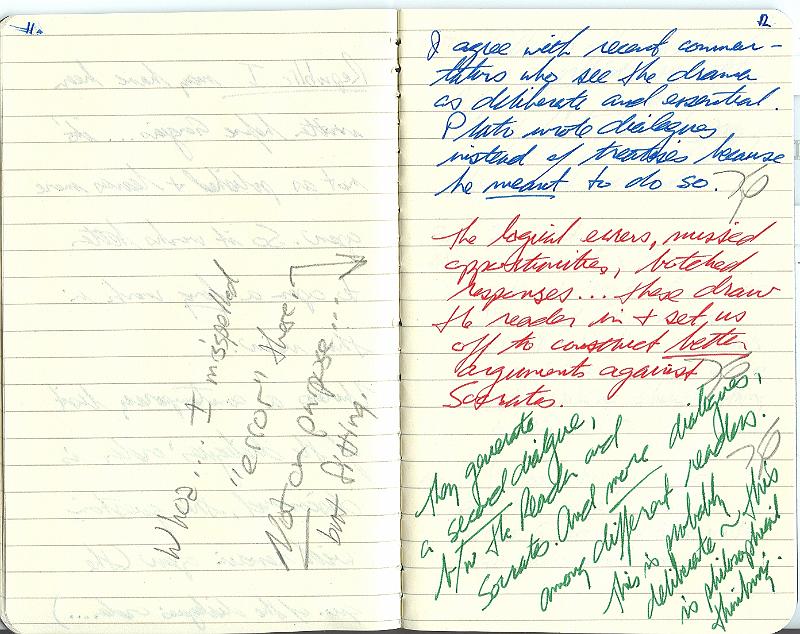 11.
Whoa... I misspelled
"error" there.
Not on purpose...
but fitting.
12
I agree with recent commen-
tators who see the drama
as deliberate and essential.
Plato wrote dialogues
instead of treatises because
he meant to do so.
The logical errers, missed
opportunities, botched
responses... these draw
the reader in + set us
off to construct better
arguments against
Socrates.
They generate
a second dialogue,
b/w the Reader and
Socrates. And more dialogues,
among different readers.
This is probably
deliberate ~ this
is philosophical
thinking.